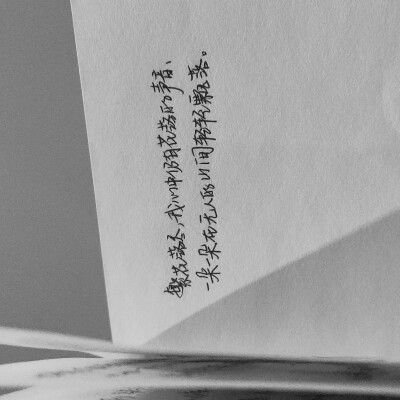 繁花落尽,我心中仍有花落的声音、
一朵一朵在无人的山间轻轻飘落。